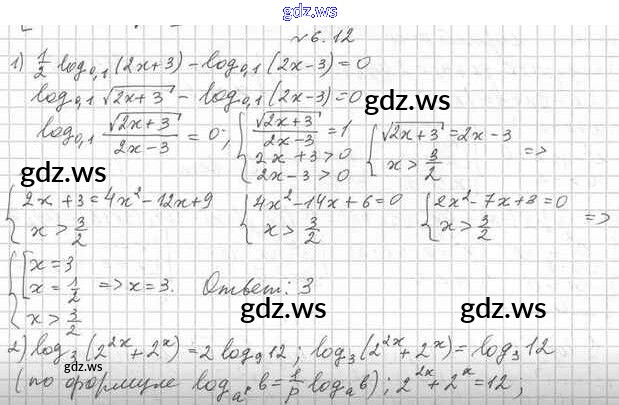 gdz.ws
№ 6.12
1) 1/2 log₀,₁(2x+3) - log₀,₁(2x-3) = 0
log₀,₁ √(2x+3) - log₀,₁(2x-3) = 0
gdz.ws
log₀,₁ √(2x+3)/(2x-3) = 0; { √(2x+3)/(2x-3) = 1 { √(2x+3) = 2x-3
2x+3>0 x > 3/2 =>
2x-3>0
gdz.ws
{ 2x+3 = 4x²-12x+9 { 4x²-14x+6=0 { 2x²-7x+3=0
x > 3/2 x > 3/2 x > 3/2 =>
{ [ x=3
x = 1/2 => x=3. Ответ: 3
x > 3/2
gdz.ws gdz.ws
2) log₃(2²ˣ+2ˣ) = 2 log₉12; log₃(2²ˣ+2ˣ) = log₃12
gdz.ws
(по формуле log_aᵖ b = 1/p log_a b); 2²ˣ+2ˣ=12;